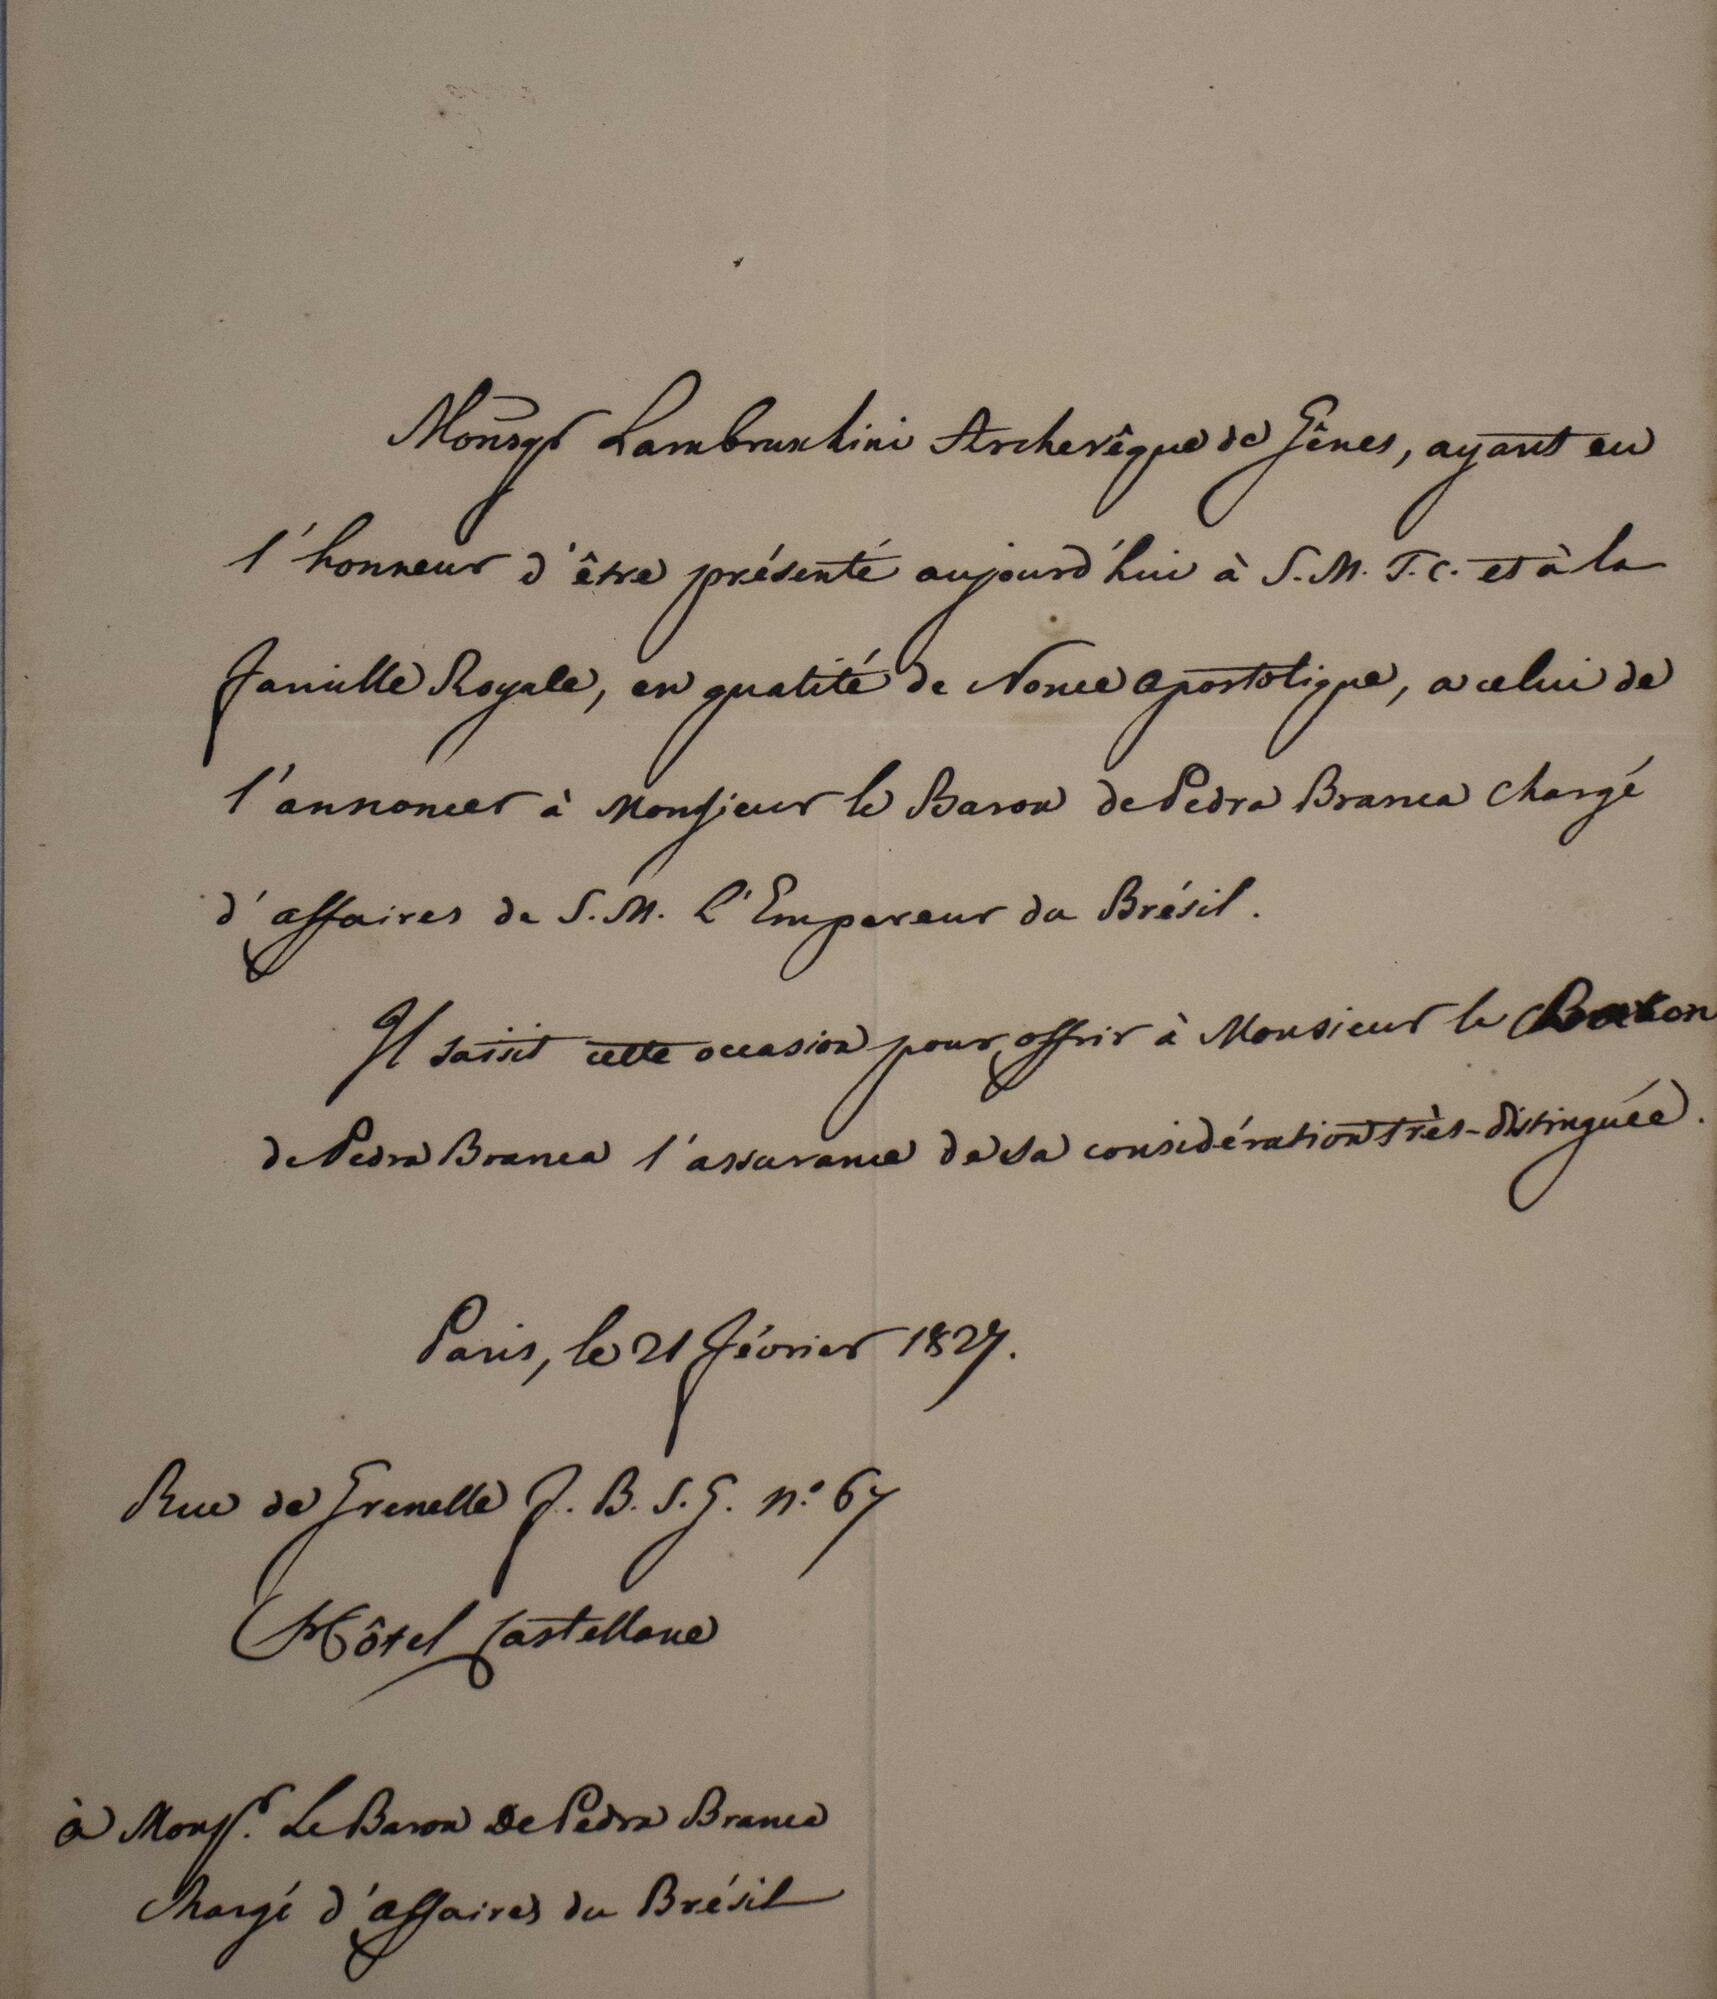 Monsgr Lambruschini Archevêque de Gênes, ayant eu
l'honneur d'être présenté aujourd'hui à S. M. T. C. et à la
famille Royale, en qualité de Nonce apostolique, a celui de
l'annoncer à Monsieur le Baron de Pedra Branca chargé
d'affaires de S. M. L'Empereur du Brésil.
Il saisit cette occasion pour offrir à Monsieur le Baron
de Pedra Branca l'assurance de sa considération très-distinguée.
Paris, le 21 février 1827.
Rue de Grenelle f. B. S. G. n.o 67
Hôtel Castellane
à Monsr. Le Baron De Pedra Branca
Chargé d'affaires du Brésil